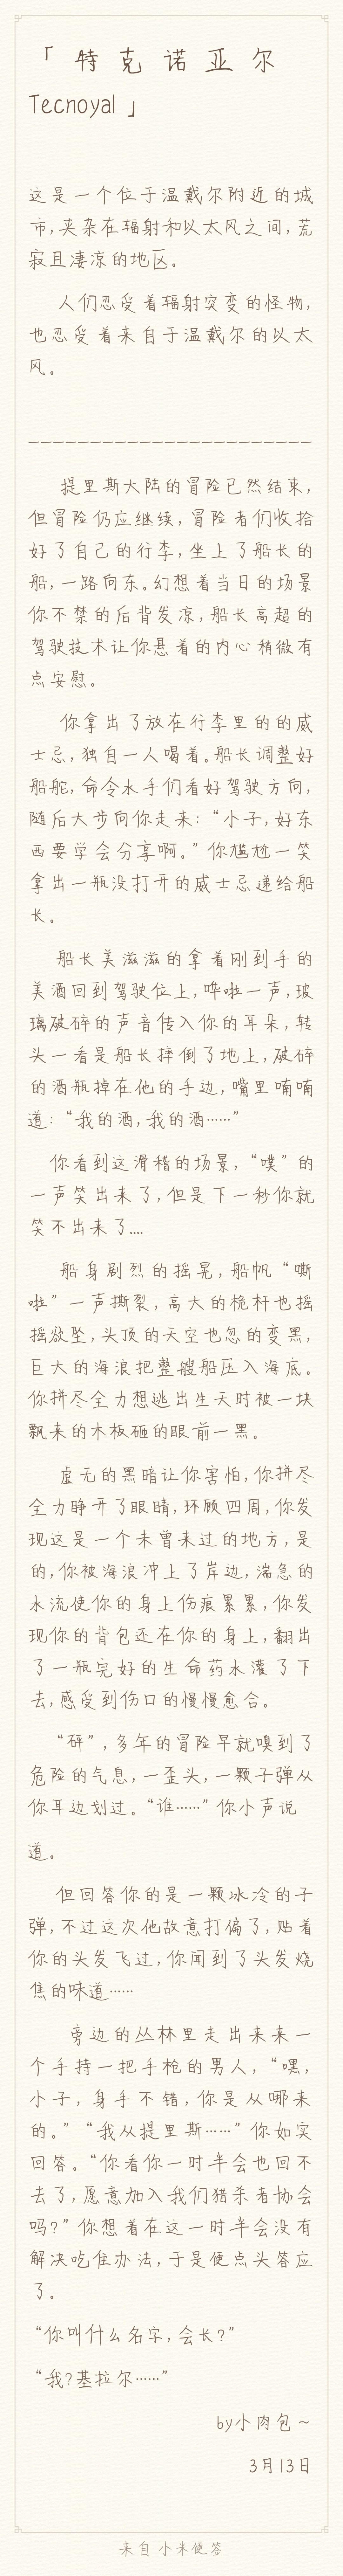 「特克诺亚尔
Tecnoyal」
这是一个位于温戴尔附近的城
市,夹杂在辐射和以太风之间,荒
寂且凄凉的地区。
人们忍受着辐射突变的怪物,
也忍受着来自于温戴尔的以太
风。
————————————————————————
提里斯大陆的冒险已然结束,
但冒险仍应继续,冒险者们收拾
好了自己的行李,坐上了船长的
船,一路向东。幻想着当日的场景
你不禁的后背发凉,船长高超的
驾驶技术让你悬着的内心稍微有
点安慰。
你拿出了放在行李里的的威
士忌,独自一人喝着。船长调整好
船舵,命令水手们看好驾驶方向,
随后大步向你走来:“小子,好东
西要学会分享啊。”你尴尬一笑
拿出一瓶没打开的威士忌递给船
长。
船长美滋滋的拿着刚到手的
美酒回到驾驶位上,哗啦一声,玻
璃破碎的声音传入你的耳朵,转
头一看是船长摔倒了地上,破碎
的酒瓶掉在他的手边,嘴里喃喃
道:“我的酒,我的酒……”
你看到这滑稽的场景,“噗”的
一声笑出来了,但是下一秒你就
笑不出来了....
船身剧烈的摇晃,船帆“嘶
啦”一声撕裂,高大的桅杆也摇
摇欲坠,头顶的天空也忽的变黑,
巨大的海浪把整艘船压入海底。
你拼尽全力想逃出生天时被一块
飘来的木板砸的眼前一黑。
虚无的黑暗让你害怕,你拼尽
全力睁开了眼睛,环顾四周,你发
现这是一个未曾来过的地方,是
的,你被海浪冲上了岸边,湍急的
水流使你的身上伤痕累累,你发
现你的背包还在你的身上,翻出
了一瓶完好的生命药水灌了下
去,感受到伤口的慢慢愈合。
“砰”,多年的冒险早就嗅到了
危险的气息,一歪头,一颗子弹从
你耳边划过。“谁……”你小声说
道。
但回答你的是一颗冰冷的子
弹,不过这次他故意打偏了,贴着
你的头发飞过,你闻到了头发烧
焦的味道……
旁边的丛林里走出来来一
个手持一把手枪的男人,“嘿,
小子,身手不错,你是从哪来
的。”“我从提里斯……”你如实
回答。“你看你一时半会也回不
去了,愿意加入我们猎杀者协会
吗?”你想着在这一时半会没有
解决吃住办法,于是便点头答应
了。
“你叫什么名字,会长?”
“我?基拉尔……”
by小肉包~
3月13日
来自小米便签